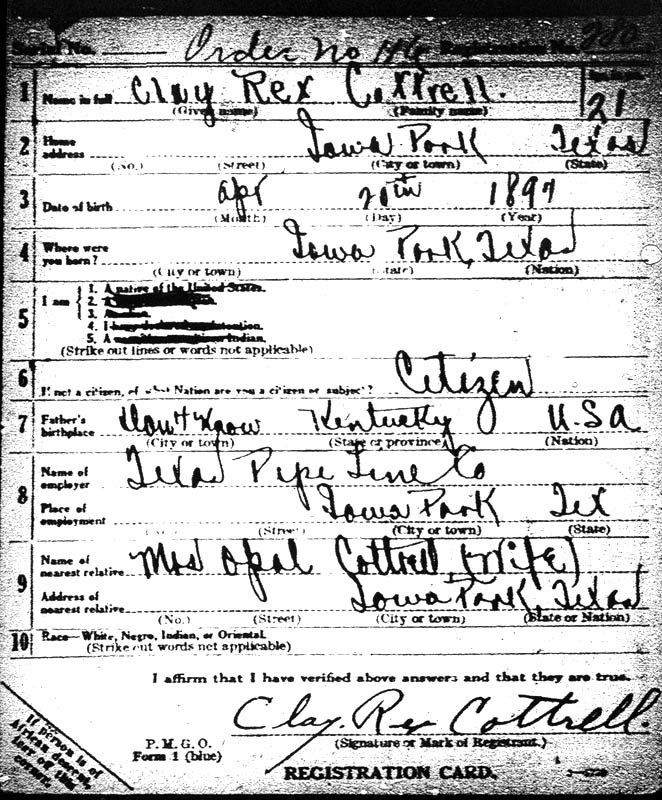 Serial No. Order No 146 Registration No. 220
1 Name in full Clay Rex Cottrell. 21
(Given name) (Family name)
2 Home address Iowa Park Texas
(No.) (Street) (City or town) (State)
3 Date of birth Apr 20th 1897
(Month) (Day) (Year)
4 Where were you born? Iowa Park, Texas
(City or town) (State) (Nation)
5 I am
1. A native of the United States.
2. A
3. A
4. I
5. A Indian.
(Strike out lines or words not applicable)
6 If not a citizen, of what Nation are you a citizen or subject? Citizen
7 Father's birthplace Don't Know Kentucky U.S.A
(City or town) (State or province) (Nation)
8 Name of employer Texas Pipe Line Co
Place of employment Iowa Park Tex
(Street) (City or town) (State)
9 Name of nearest relative Mrs Opal Cottrell, (Wife)
Address of nearest relative Iowa Park, Texas
(No.) (Street) (City or town) (State or Nation)
10 Race—White, Negro, Indian, or Oriental.
(Strike out words not applicable)
I affirm that I have verified above answers and that they are true.
Clay. Rex Cottrell.
P. M. G. O. (Signature or Mark of Registrant.)
Form 1 (blue)
REGISTRATION CARD.
If person is of
African descent,
tear off this
corner.